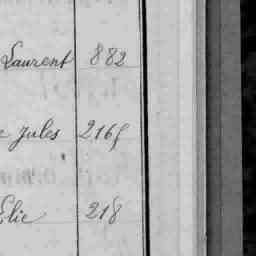 Laurent 882
e Jules 2165
Elie 218